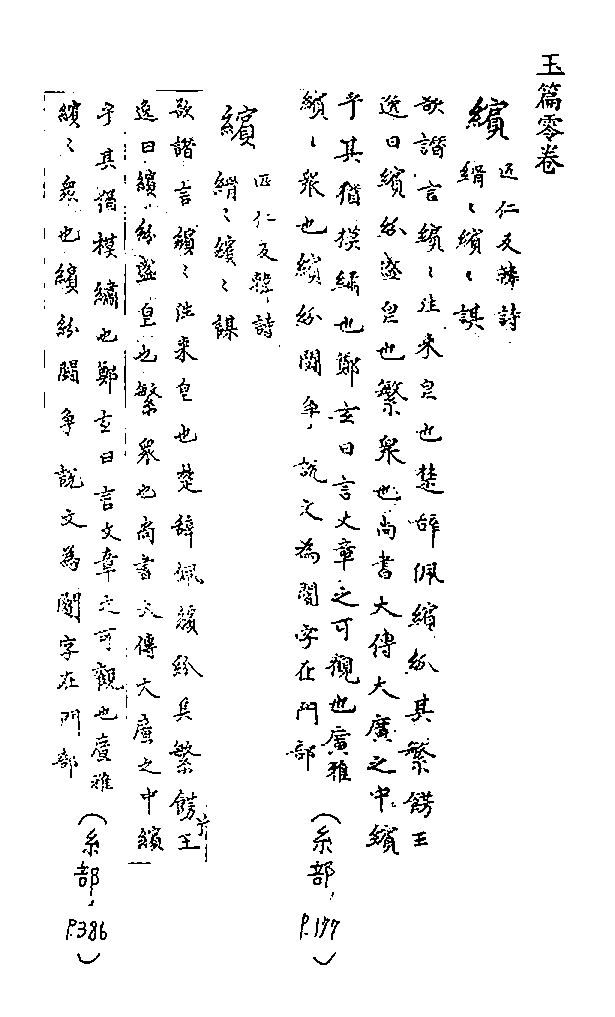 玉篇零卷
繽
匹仁反韓詩
縎〻繽〻謀
欲譖言繽〻往来皃也楚辞佩繽紛其繁餝王
逸曰繽紛盛皃也繁衆也尚書大傳大廣之中繽
乎其猶摸繡也鄭玄曰言文章之可觀也廣雅
繽〻衆也繽紛鬪争説文為闠字在門部
(糸部,P.177)
繽
匹仁反韓詩
縎〻繽〻謀
欲譖言繽〻往来皃也楚辞佩繽紛其繁餝王
逸曰繽紛盛皃也繁衆也尚書大傳大廣之中繽
乎其猶模繡也鄭玄曰言文章之可觀也廣雅
繽〻衆也繽紛鬪争説文為字在門部
(糸部,P.386)